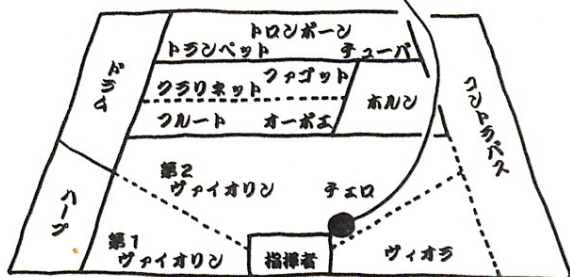 トロンボーン
トランペット チューバ
ドラム
ファゴット
クラリネット
ホルン
フルート オーボエ
コントラバス
第2
ヴァイオリン
チェロ
ハープ
第1
ヴァイオリン
指揮者
ヴィオラ